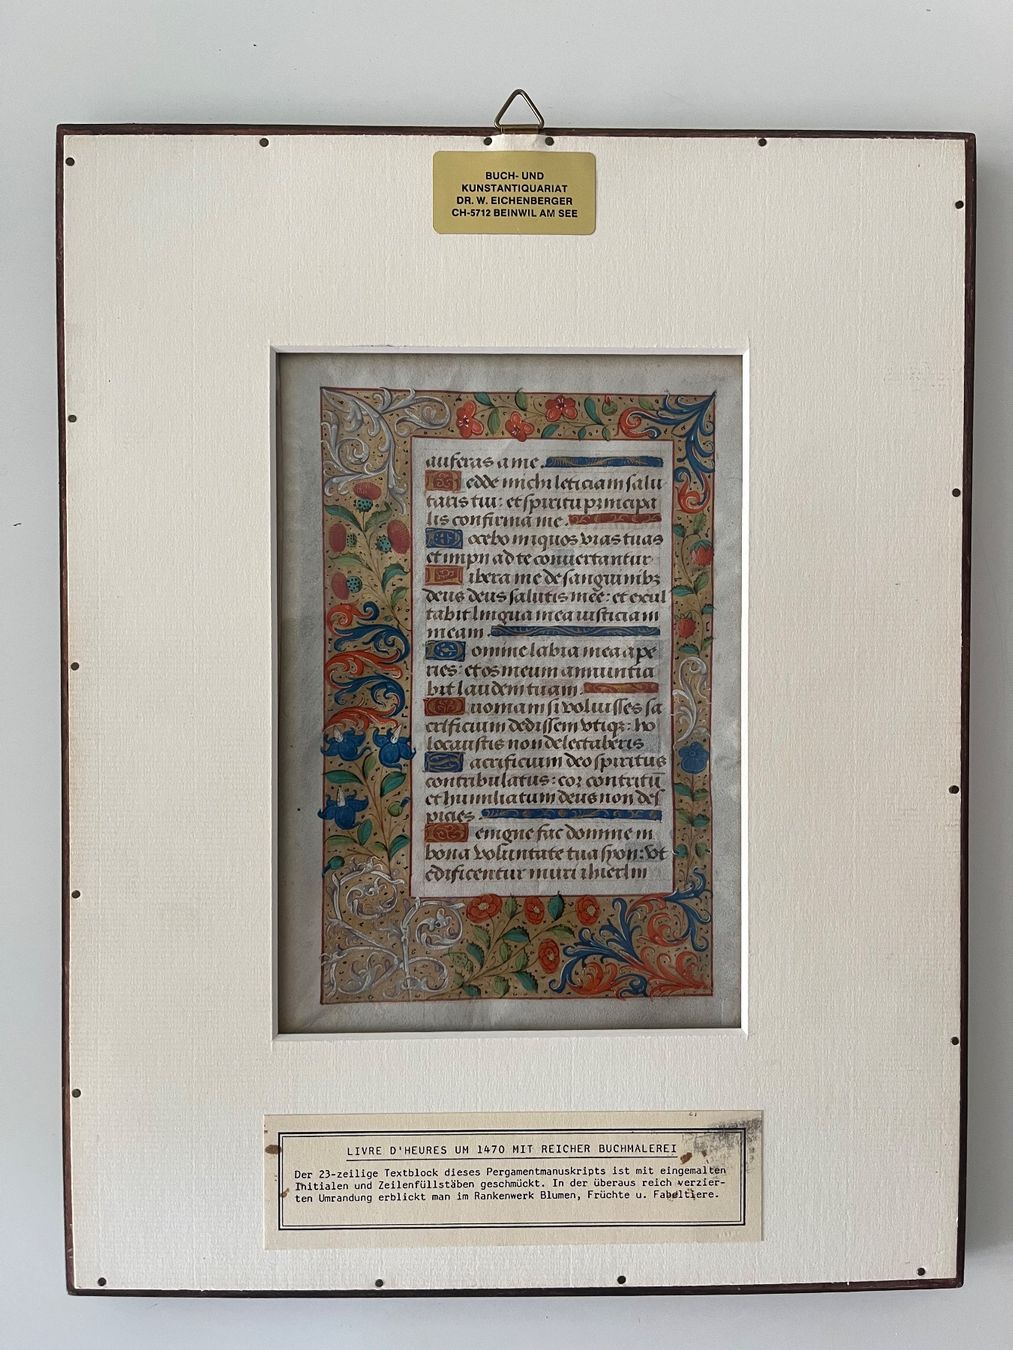 BUCH- UND
KUNSTANTIQUARIAT
DR. W. EICHENBERGER
CH-5712 BEINWIL AM SEE
auferas a me.
Redde michi leticiam salu
taris tui: et spiritu principa
lis confirma me.
Docebo iniquos vias tuas
et impii ad te convertantur
Libera me de sanguinibz
deus deus salutis mee: et exul
tabit lingua mea iusticiam
meam.
Domine labia mea ape
ries: et os meum annuntia
bit laudem tuam.
Quoniam si voluisses sa
crificium dedissem vtiqz: ho
locaustis non delectaberis
Sacrificium deo spiritus
contribulatus: cor contritū
et humiliatum deus non des
picies.
Benigne fac domine in
bona voluntate tua syon: vt
edificentur muri iherlm
LIVRE D'HEURES UM 1470 MIT REICHER BUCHMALEREI
Der 23-zeilige Textblock dieses Pergamentmanuskripts ist mit eingemalten
Initialen und Zeilenfüllstäben geschmückt. In der überaus reich verzier-
ten Umrandung erblickt man im Rankenwerk Blumen, Früchte u. Fabeltiere.